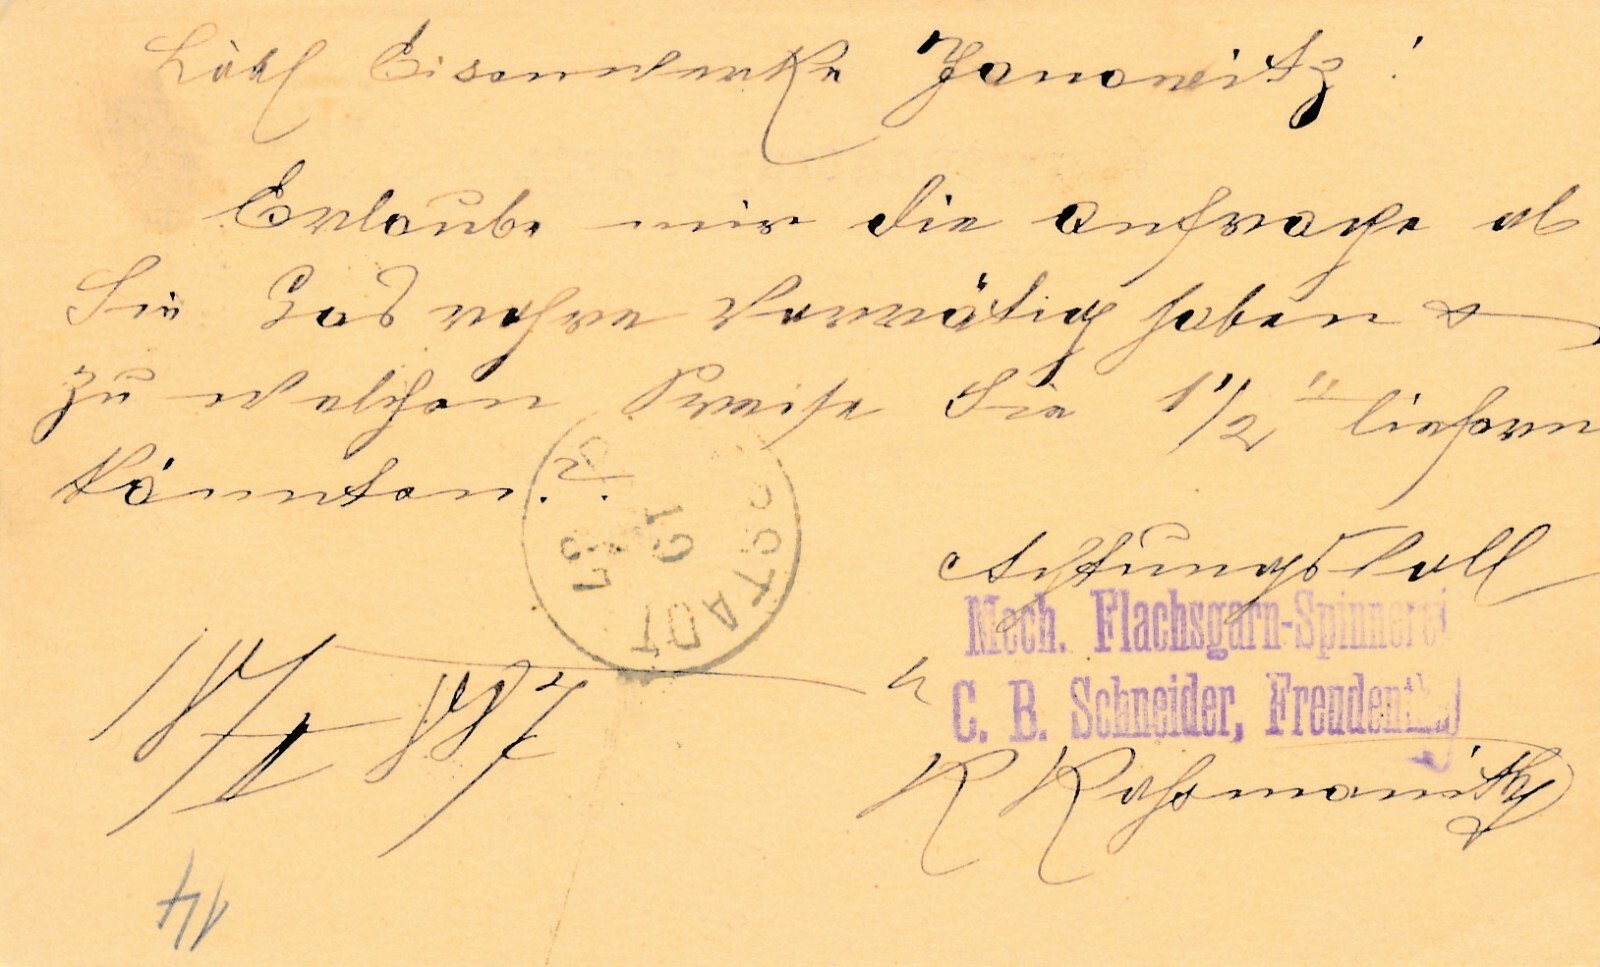 Löbl Eisenwerke Janowitz!
Erlaube mir die Anfrage ob
Sie Gasrohre vorrätig haben &
zu welchen Preise Sie 1 1/2" liefern
könnten.?.
Achtungsvoll
Mech. Flachsgarn-Spinnerei
C. B. Schneider, Freudenthal
14